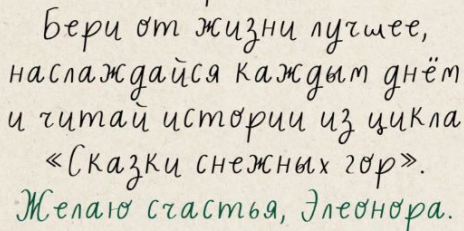 Бери от жизни лучшее,
наслаждайся каждым днём
и читай истории из цикла
«Сказки снежных гор».
Желаю счастья, Элеонора.